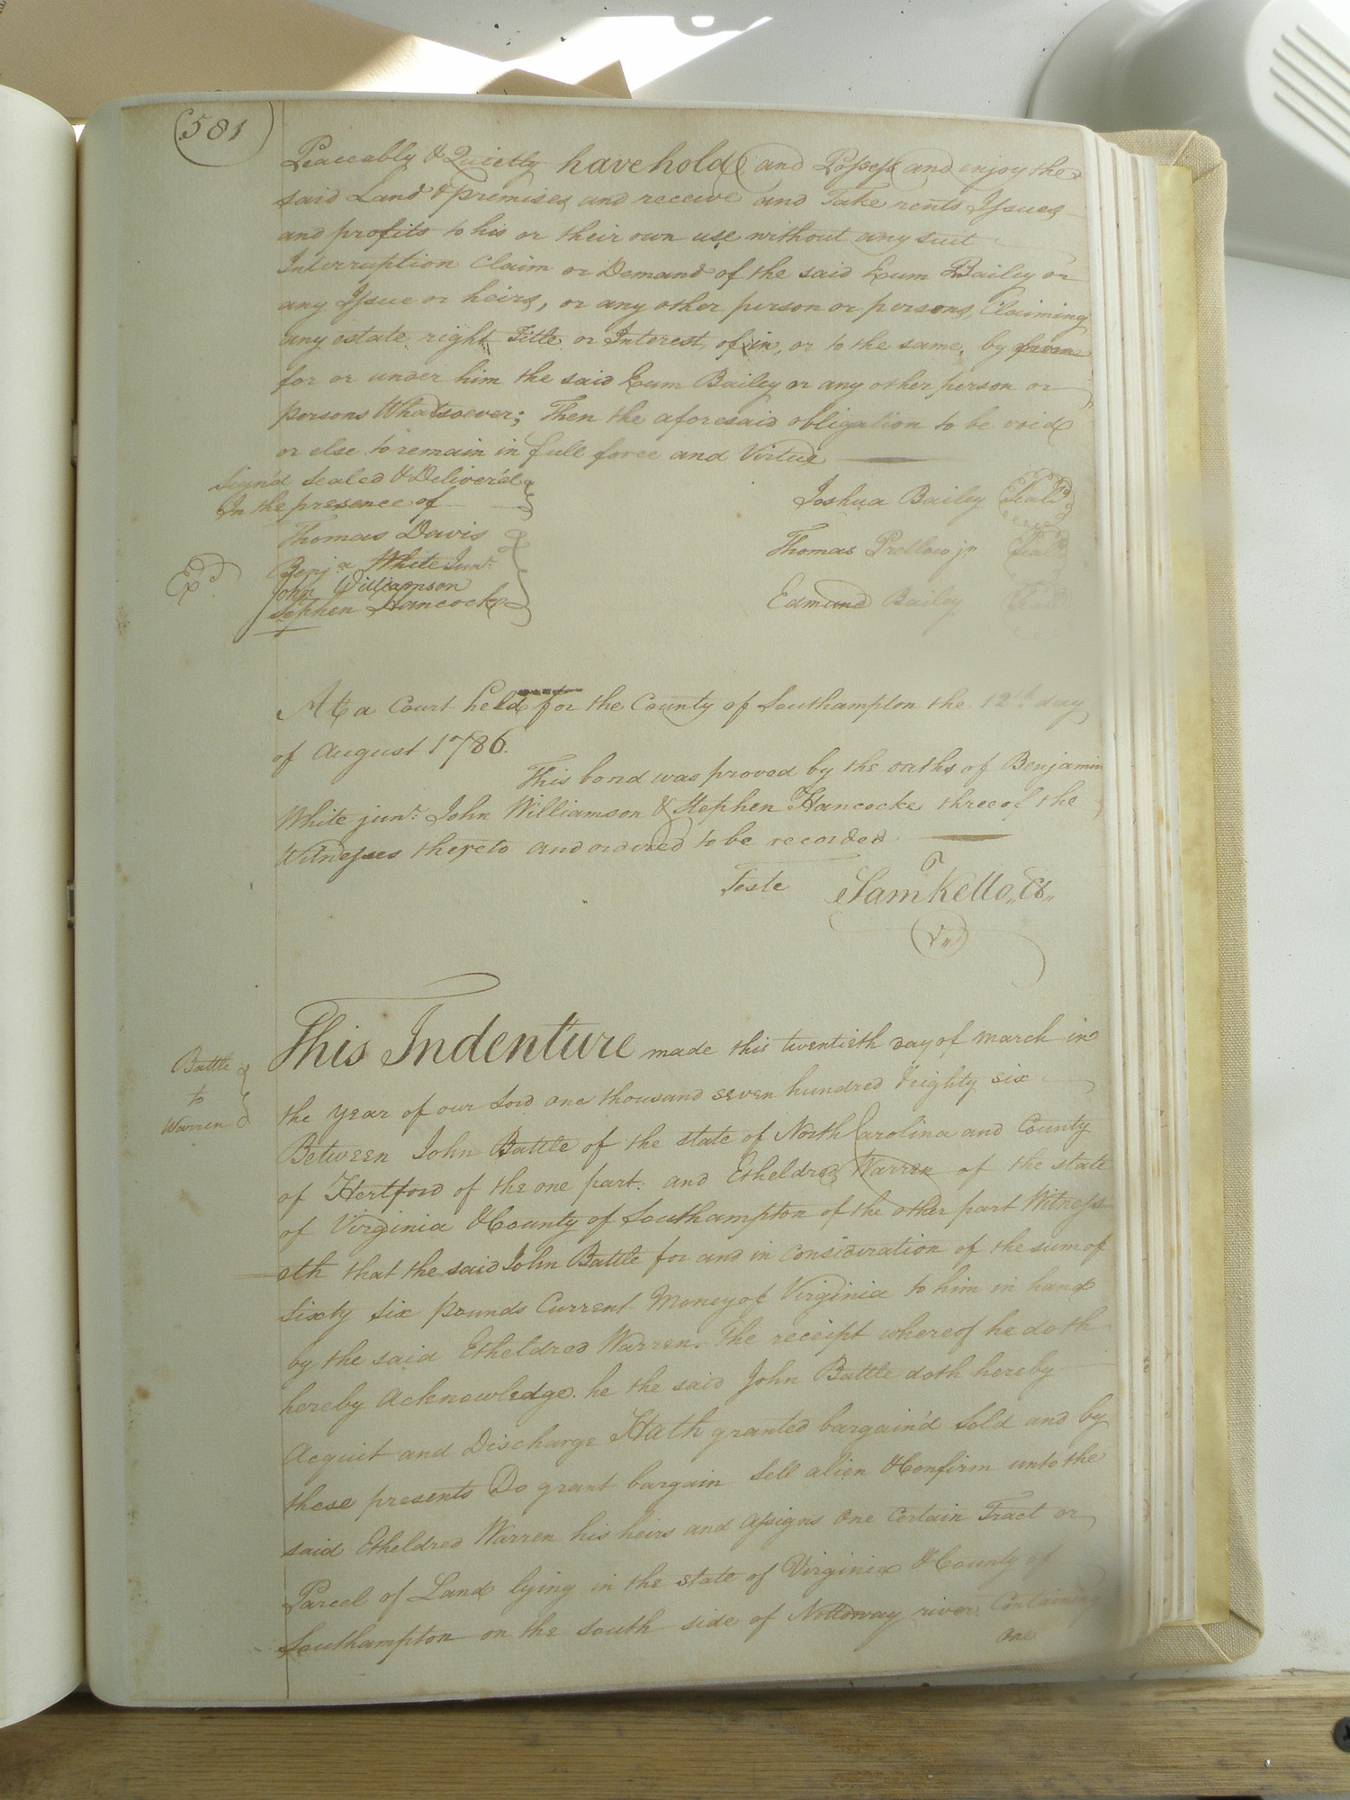 581
Peaceably & Quietly have hold and Possess and enjoy the
said Land & premises and receive and Take rents Issues
and profits to his or their own use without any suit
Interruption Claim or Demand of the said Exum Bailey or
any Issue or heirs, or any other person or persons Claiming
any estate right Title or Interest, of, in, or to the same, by from
for or under him the said Exum Bailey or any other person or
persons Whatsoever; Then the aforesaid obligation to be void
or else to remain in full force and Virtue
Sign'd Sealed & Deliver'd
In the presence of
Joshua Bailey Seal
Thomas Davis
Thomas Pretlow jr Seal
Benja White Junr.
John Williamson
Stephen Hancocke
Edmund Bailey Seal
Exd
At a Court held for the County of Southampton the 12th day
of August 1786.
This bond was proved by the oaths of Benjamin
White junr. John Williamson & Stephen Hancocke three of the
Witnesses thereto and ordered to be recorded
Teste Sam Kello, C
This Indenture made this twentieth day of March in
Battle
to
Warren
the year of our Lord one thousand seven hundred & eighty six
Between John Battle of the state of North Carolina and County
of Hertford of the one part. and Etheldred Warren of the state
of Virginia & County of Southampton of the other part Witness
eth that the said John Battle for and in consideration of the sum of
sixty six pounds Current Money of Virginia to him in hand
by the said Etheldred Warren. The receipt whereof he doth
hereby Acknowledge. he the said John Battle doth hereby
Acquit and Discharge Hath granted bargain'd Sold and by
these presents Do grant bargain Sell alien & Confirm unto the
said Etheldred Warren his heirs and Assigns One Certain Tract or
Parcel of Land lying in the state of Virginia & County of
Southampton on the south side of Nottoway river Containing
One